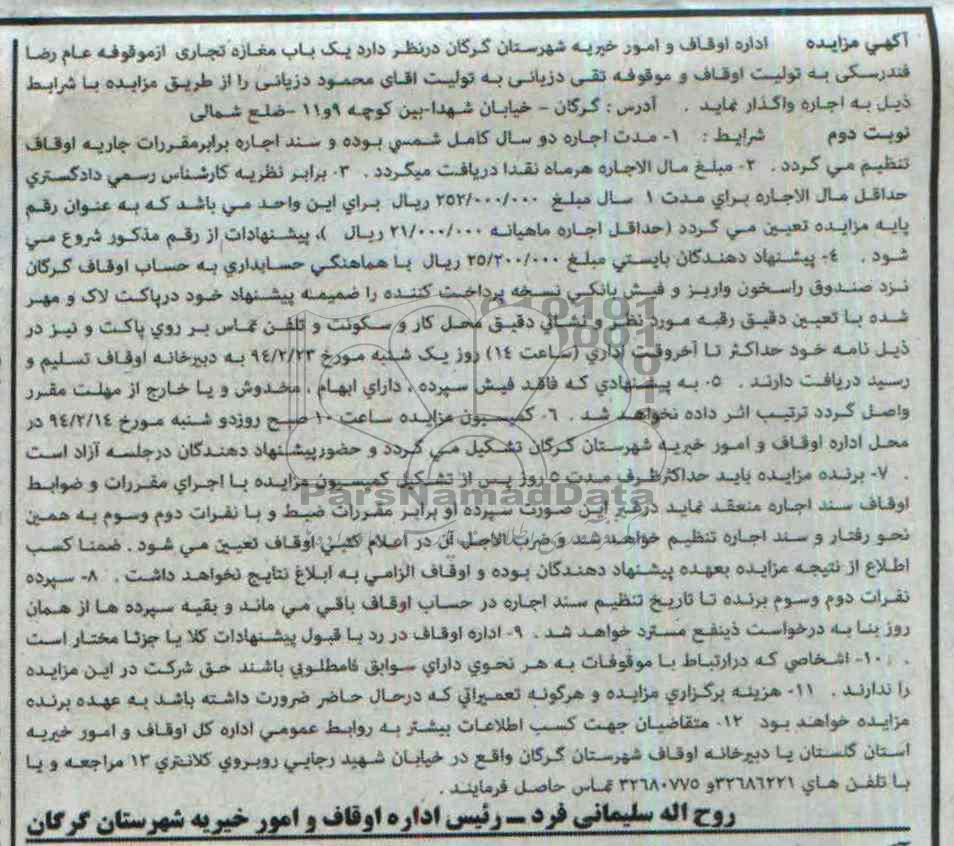 آگهي مزايده      اداره اوقاف و امور خيريه شهرستان گرگان درنظر دارد يک باب مغازه تجاری ازموقوفه عام رضا
فندرسکی به توليت اوقاف و موقوفه تقی دزيانی به توليت اقای محمود دزيانی را از طريق مزايده با شرايط
ذيل به اجاره واگذار نمايد .    آدرس : گرگان - خيابان شهدا-بين کوچه ۹و۱۱ -ضلع شمالی
نوبت دوم      شرايط :   ۱- مدت اجاره دو سال کامل شمسي بوده و سند اجاره برابرمقررات جاريه اوقاف
تنظيم مي گردد . ۲- مبلغ مال الاجاره هرماه نقدا دريافت ميگردد . ۳- برابر نظريه کارشناس رسمي دادگستري
حداقل مال الاجاره براي مدت ۱ سال مبلغ ۲۵۲/۰۰۰/۰۰۰ ريال براي اين واحد مي باشد که به عنوان رقم
پايه مزايده تعيين مي گردد (حداقل اجاره ماهيانه ۲۱/۰۰۰/۰۰۰ ريال )، پيشنهادات از رقم مذکور شروع مي
شود . ۴- پيشنهاد دهندگان بايستي مبلغ ۲۵/۲۰۰/۰۰۰ ريال با هماهنگي حسابداري به حساب اوقاف گرگان
نزد صندوق راسخون واريز و فيش بانکي نسخه پرداخت کننده را ضميمه پيشنهاد خود درپاکت لاک و مهر
شده با تعيين دقيق رقبه مورد نظر و نشاني دقيق محل کار و سکونت و تلفن تماس بر روي پاکت و نيز در
ذيل نامه خود حداکثر تا آخروقت اداري (ساعت ۱۴) روز يک شنبه مورخ ۹۴/۲/۲۳ به دبيرخانه اوقاف تسليم و
رسيد دريافت دارند . ۵- به پيشنهادي که فاقد فيش سپرده ، داراي ابهام ، مخدوش و يا خارج از مهلت مقرر
واصل گردد ترتيب اثر داده نخواهد شد . ۶- کميسيون مزايده ساعت ۱۰ صبح روزدو شنبه مورخ ۹۴/۲/۱۴ در
محل اداره اوقاف و امور خيريه شهرستان گرگان تشکيل مي گردد و حضورپيشنهاد دهندگان درجلسه آزاد است
. ۷- برنده مزايده بايد حداکثرظرف مدت ۵ روز پس از تشکيل کميسيون مزايده با اجراي مقررات و ضوابط
اوقاف سند اجاره منعقد نمايد درغير اين صورت سپرده او برابر مقررات ضبط و با نفرات دوم وسوم به همين
نحو رفتار و سند اجاره تنظيم خواهد شد و ضرب الاجل آن در اعلام کتبي اوقاف تعيين مي شود . ضمنا کسب
اطلاع از نتيجه مزايده بعهده پيشنهاد دهندگان بوده و اوقاف الزامي به ابلاغ نتايج نخواهد داشت . ۸- سپرده
نفرات دوم وسوم برنده تا تاريخ تنظيم سند اجاره در حساب اوقاف باقي مي ماند و بقيه سپرده ها از همان
روز بنا به درخواست ذينفع مسترد خواهد شد . ۹- اداره اوقاف در رد يا قبول پيشنهادات کلا يا جزئا مختار است
. ۱۰- اشخاصي که درارتباط با موقوفات به هر نحوي داراي سوابق نامطلوبي باشند حق شرکت در اين مزايده
را ندارند . ۱۱- هزينه برگزاري مزايده و هرگونه تعميراتي که درحال حاضر ضرورت داشته باشد به عهده برنده
مزايده خواهد بود ۱۲- متقاضيان جهت کسب اطلاعات بيشتر به روابط عمومي اداره کل اوقاف و امور خيريه
استان گلستان يا دبيرخانه اوقاف شهرستان گرگان واقع در خيابان شهيد رجايي روبروي کلانتري ۱۳ مراجعه و يا
با تلفن هاي ۳۲۶۸۶۲۲۱و ۳۲۶۸۰۷۷۵ تماس حاصل فرمايند .
روح اله سليمانی فرد ــ رئيس اداره اوقاف و امور خيريه شهرستان گرگان
ParsNamadData